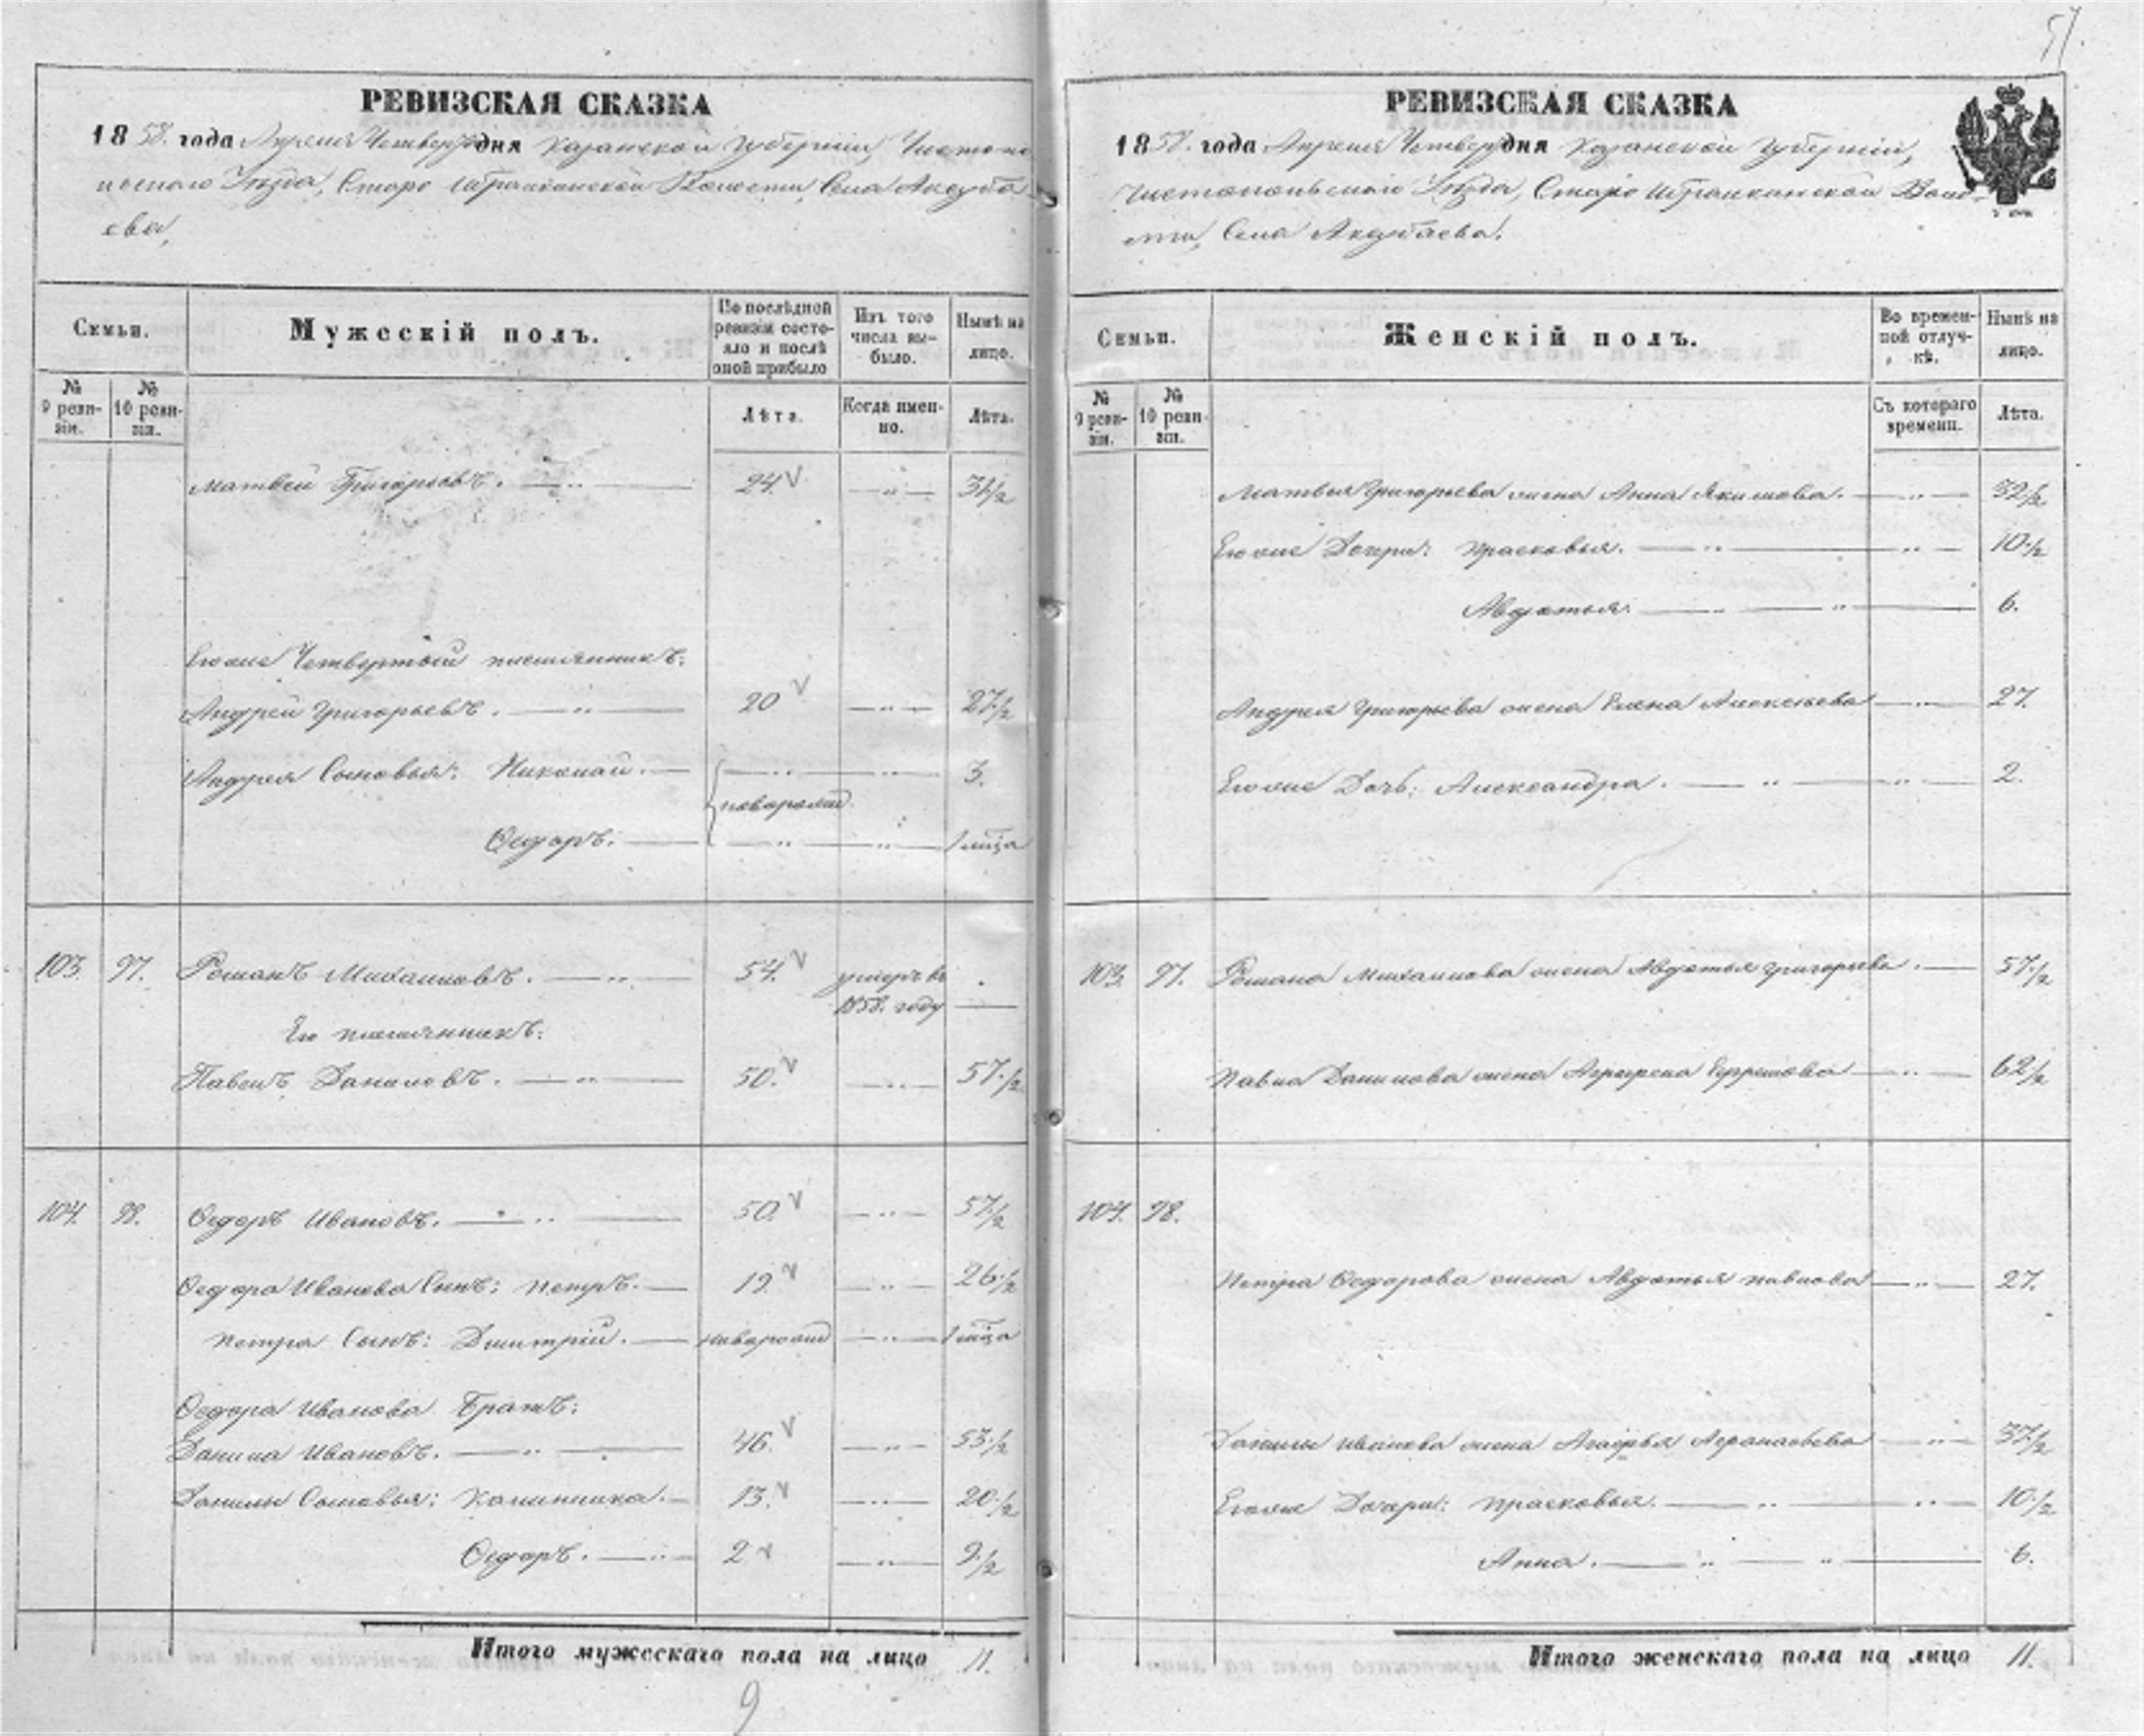 57
РЕВИЗСКАЯ СКАЗКА
1858. года Апреля Четвер дня Казанской Губерніи, Чистопо
польскаго Уѣзда, Старо Волости, Села Акуба
ева,
Семьи.
Мужескій полъ.
По послѣдней ревизіи состояло и послѣ оной прибыло
Изъ того числа выбыло.
Нынѣ на лицо.
№ 9 ревизіи.
№ 10 ревизіи.
Лѣта.
Когда именно.
Лѣта.
Матвей Григорьевъ. 24. 31½
Еюже Четвертый племянникъ:
Андрей Григорьевъ. 20 27½
Андрея Сыновья: Николай. 3.
новорожд.
Ѳедоръ. 1 мѣца
103. 97. Романъ Михаиловъ. 54. умеръ въ
1858. году
Его племянникъ:
Павелъ Даниловъ. 50. 57½
104. 98. Ѳедоръ Ивановъ. 50. 57½
Ѳедора Иванова Сынъ: Петръ. 19. 26½
Петра Сынъ: Дмитрій. новорожд 1 мѣца
Ѳедора Иванова Братъ:
Данила Ивановъ. 46. 53½
Данилы Сыновья: Калинника. 13. 20½
Ѳедоръ. 2 9½
Итого мужескаго пола на лицо 11.
9
РЕВИЗСКАЯ СКАЗКА
1858. года Апреля Четвер дня Казанской Губерніи,
Чистопольскаго Уѣзда, Старо Воло-
сти, Села Акубаева.
Семьи.
Женскій полъ.
Во временной отлучкѣ.
Нынѣ на лицо.
№ 9 ревизіи.
№ 10 ревизіи.
Съ котораго времени.
Лѣта.
Матвея Григорьева жена Анна Якимова. 32½
Еюже Дочри: Прасковья. 10½
Авдотья. 6.
Андрея Григорьева жена Елена Алексеева 27.
Еюже Дочь: Александра. 2.
103. 97. Романа Михаилова жена Авдотья Григорьева. 57½
Павла Данилова жена Аграфена Ефремова 62½
104. 98.
Петра Ѳедорова жена Авдотья Павлова 27.
Данилы Иванова жена Агафья Афанасьева 37½
Еюже Дочри: Прасковья. 10½
Анна. 6.
Итого женскаго пола на лицо 11.